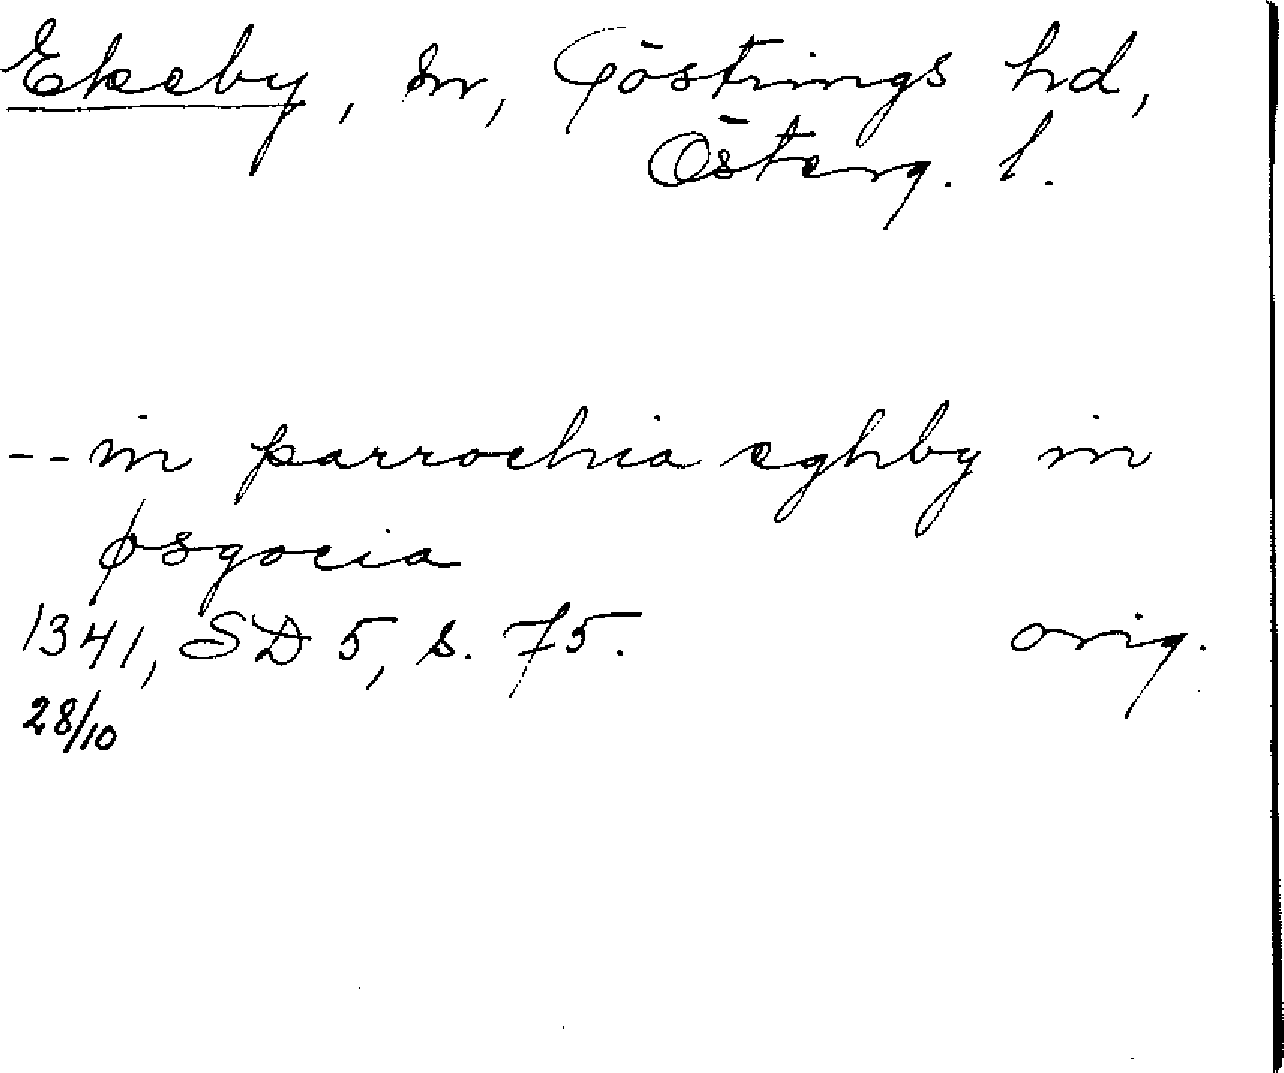 Ekeby, sn, Göstrings hd,
Österg. l.
-- in parrochia eghby in
øsgocia
1341, SD 5, s. 75. orig.
28/10